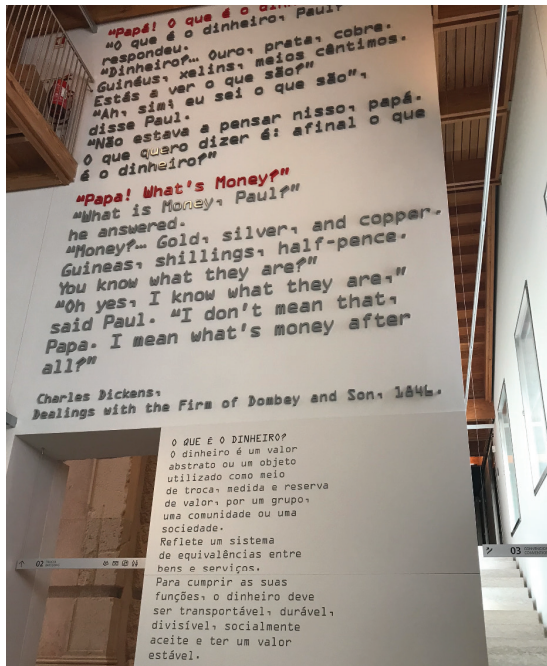 “Papá! O que é o dinheiro?”
“O que é o dinheiro, Paul?”
respondeu.
“Dinheiro?… Ouro, prata, cobre.
Guinéus, xelins, meios cêntimos.
Estás a ver o que são?”
“Ah, sim; eu sei o que são”,
disse Paul.
“Não estava a pensar nisso, papá.
O que quero dizer é: afinal o que
é o dinheiro?”
“Papa! What's Money?”
“What is Money, Paul?”
he answered.
“Money?… Gold, silver, and copper.
Guineas, shillings, half-pence.
You know what they are?”
“Oh yes, I know what they are,”
said Paul. “I don't mean that,
Papa. I mean what's money after
all?”
Charles Dickens,
Dealings with the Firm of Dombey and Son, 1846.
O QUE É O DINHEIRO?
O dinheiro é um valor
abstrato ou um objeto
utilizado como meio
de troca, medida e reserva
de valor, por um grupo,
uma comunidade ou uma
sociedade.
Reflete um sistema
de equivalências entre
bens e serviços.
Para cumprir as suas
funções, o dinheiro deve
ser transportável, durável,
divisível, socialmente
aceite e ter um valor
estável.
02
03